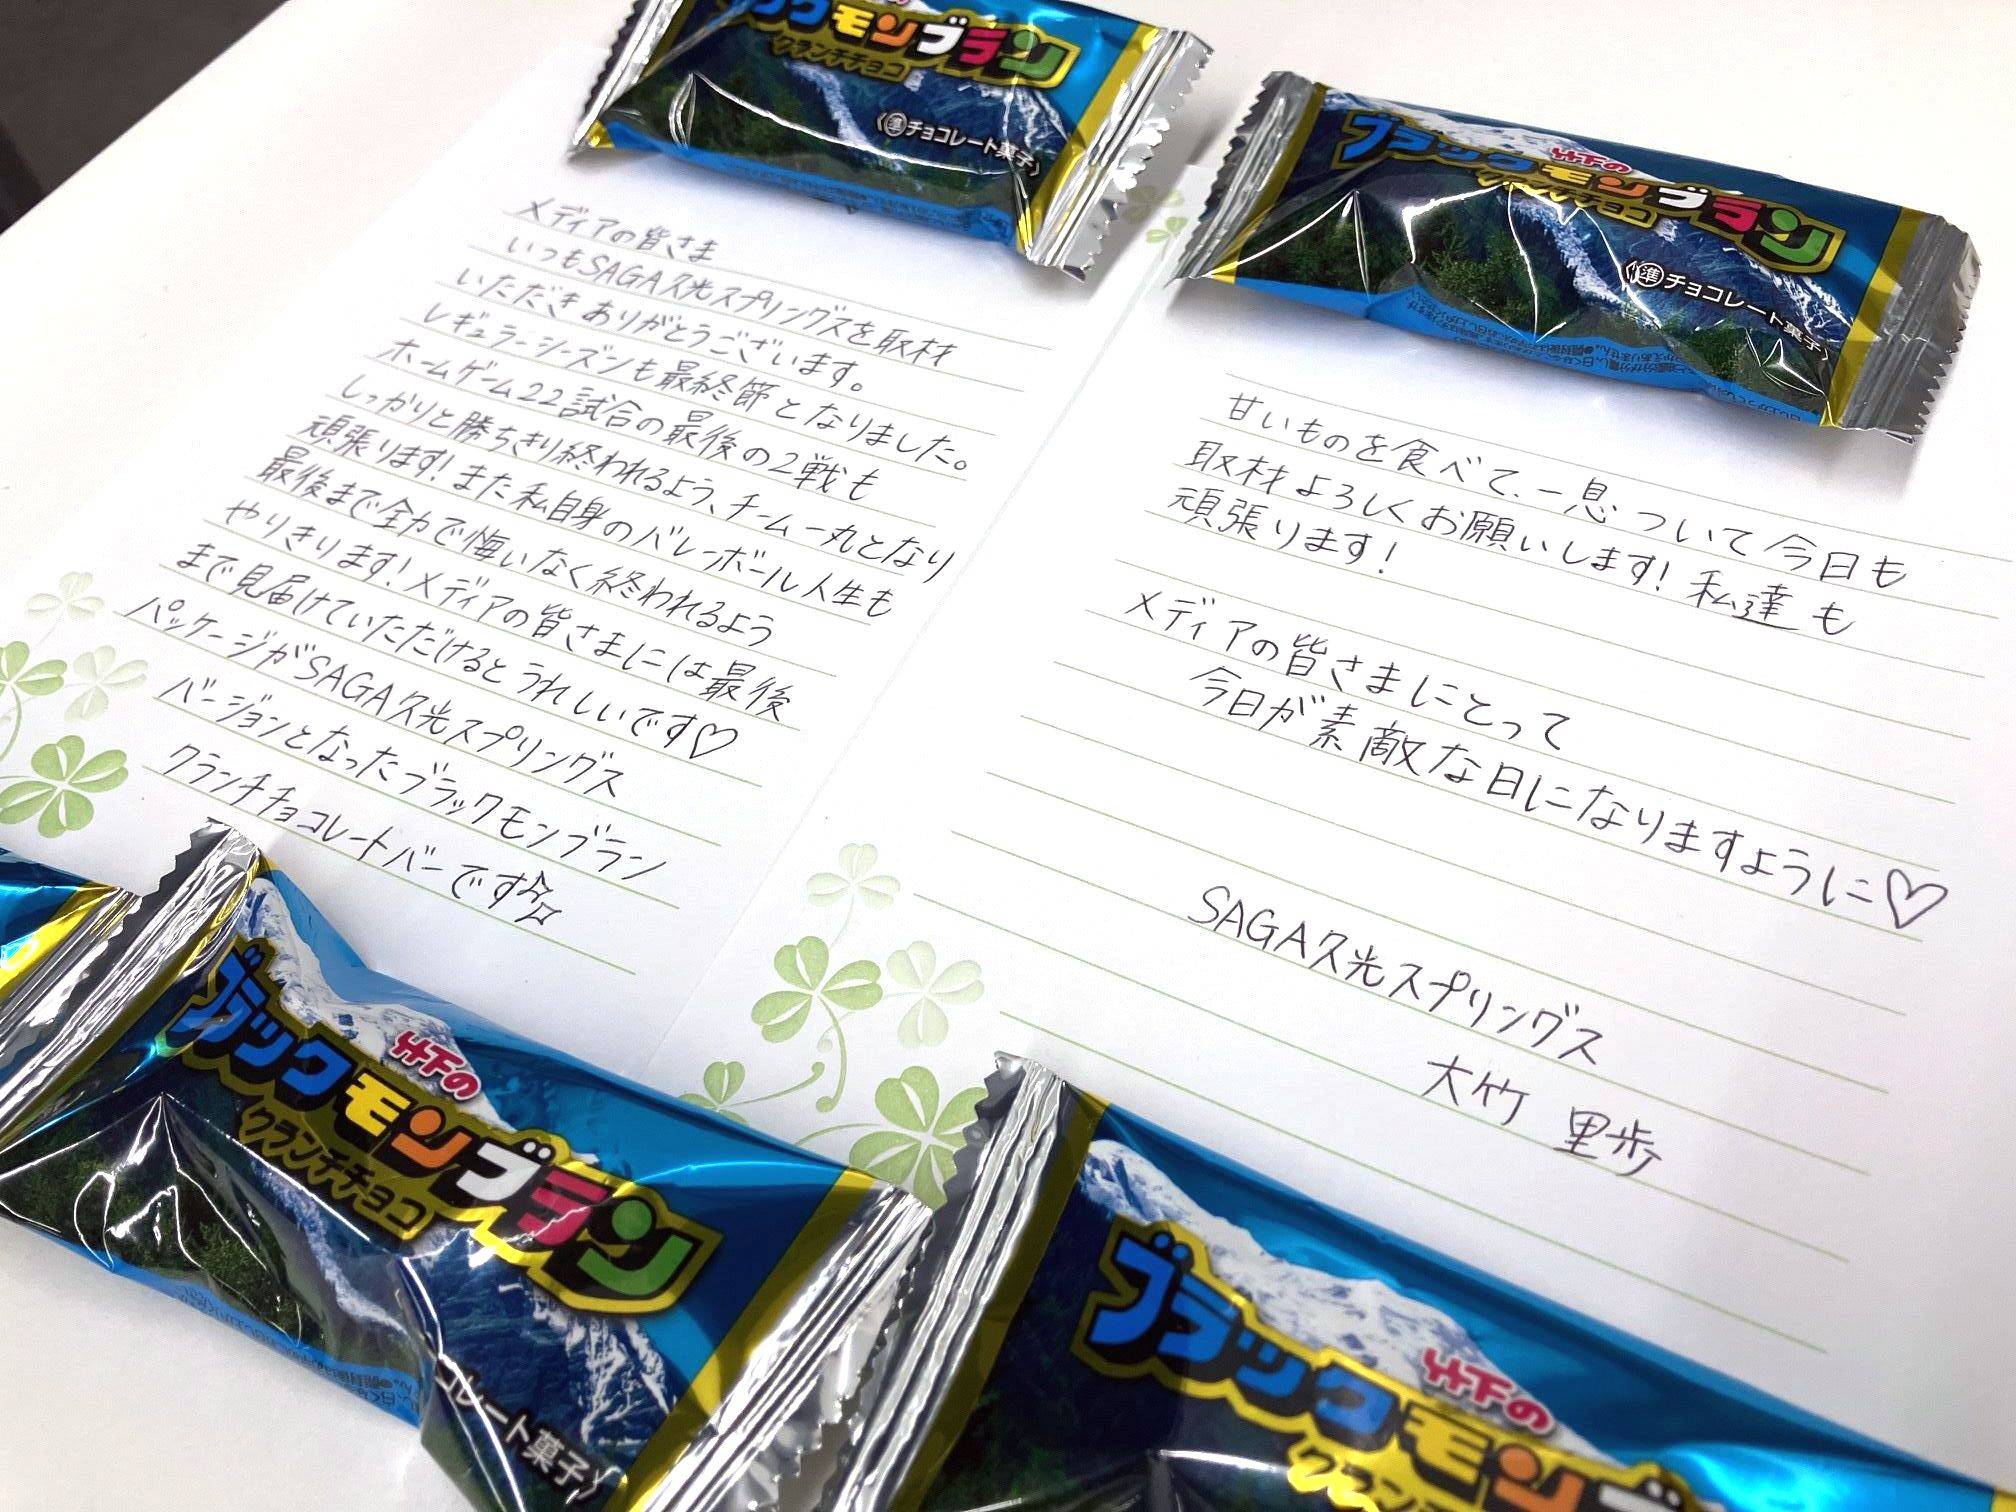 ブラックモンブラン
クランチチョコ
準チョコレート菓子
竹下の
ブラックモンブラン
クランチチョコ
準チョコレート菓子
メディアの皆さま
いつもSAGA久光スプリングスを取材
いただきありがとうございます。
レギュラーシーズンも最終節となりました。
ホームゲーム22試合の最後の2戦も
しっかりと勝ちきり終われるよう、チーム一丸となり
頑張ります!また私自身のバレーボール人生も
最後まで全力で悔いなく終われるよう
やりきります!メディアの皆さまには最後
まで見届けていただけるとうれしいです♡
パッケージがSAGA久光スプリングス
バージョンとなったブラックモンブラン
クランチチョコレートバーです☆
甘いものを食べて、一息ついて今日も
取材よろしくお願いします!私達も
頑張ります!
メディアの皆さまにとって
今日が素敵な日になりますように♡
SAGA久光スプリングス
大竹 里歩
竹下の
ブラックモンブラン
クランチチョコ
コレート菓子
竹下の
ブラックモンブラン
クランチチョコ